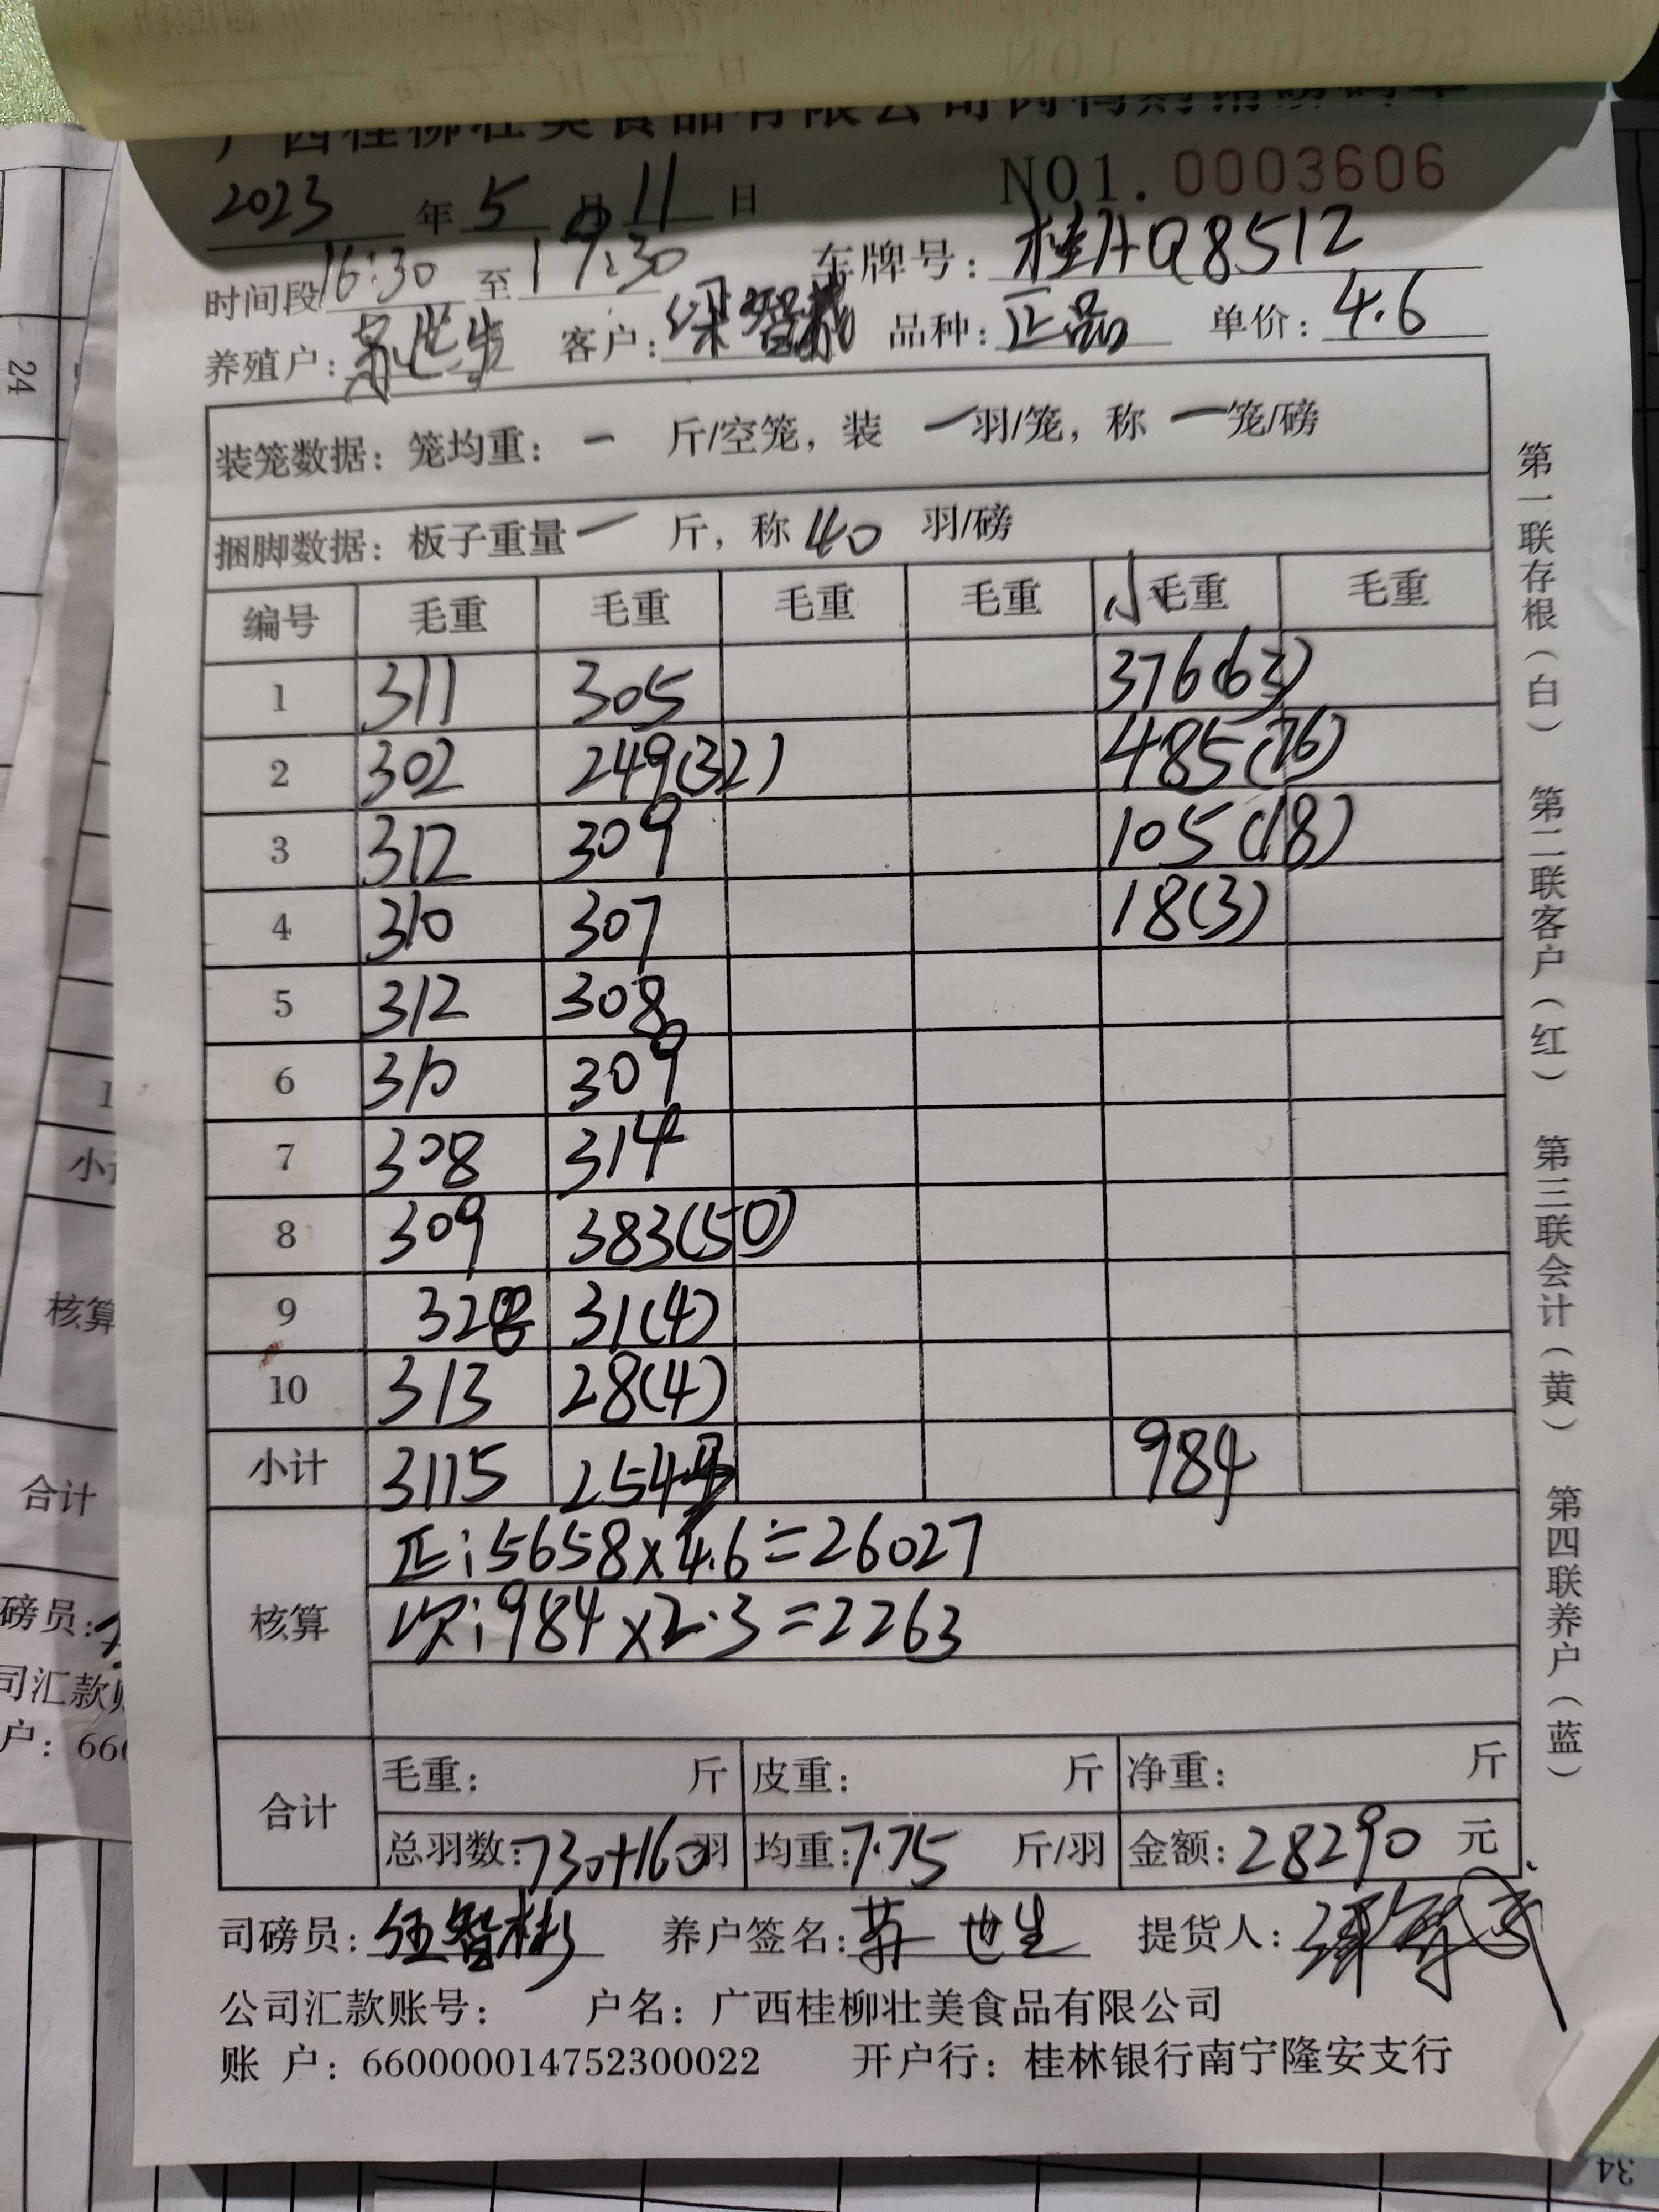 广西桂柳壮美食品有限公司肉鸭购销磅码单
NO1. 0003606
2023 年 5 月 11 日
时间段 16:30 至 17:30 车牌号: 桂AQ8512
养殖户: 苏世生 客户: 品种: 正品 单价: 4.6
装笼数据: 笼均重: — 斤/空笼, 装 — 羽/笼, 称 — 笼/磅
捆脚数据: 板子重量 — 斤, 称 40 羽/磅
编号 毛重 毛重 毛重 毛重 小毛重 毛重
1 311 305 376(63)
2 302 249(32) 485(76)
3 312 309 105(18)
4 310 307 18(3)
5 312 308
6 310 309
7 308 314
8 309 383(50)
9 328 31(4)
10 313 28(4)
小计 3115 2543 984
核算
正:5658×4.6=26027
次:984×2.3=2263
合计
毛重: 斤 皮重: 斤 净重: 斤
总羽数:730+160羽 均重:7.75 斤/羽 金额:28290 元
司磅员: 伍智彬 养户签名: 苏世生 提货人:
公司汇款账号: 户名: 广西桂柳壮美食品有限公司
账 户: 660000014752300022 开户行: 桂林银行南宁隆安支行
第一联存根(白) 第二联客户(红) 第三联会计(黄) 第四联养户(蓝)
24
1
小计
核算
合计
磅员:
司汇款账
户: 660
34